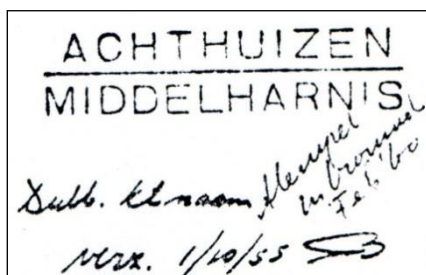 ACHTHUIZEN
MIDDELHARNIS
Dubb. kl naam
Stempel
in
Feb '60
verz. 1/10/55